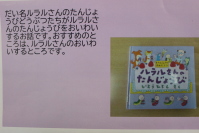 だい名ルラルさんのたんじょ
うびどうぶつたちがルラルさ
んのたんじょうびをおいわい
するお話です。おすすめのと
ころは、ルラルさんのおいわ
いするところです。
ルラルさんの
たんじょうび